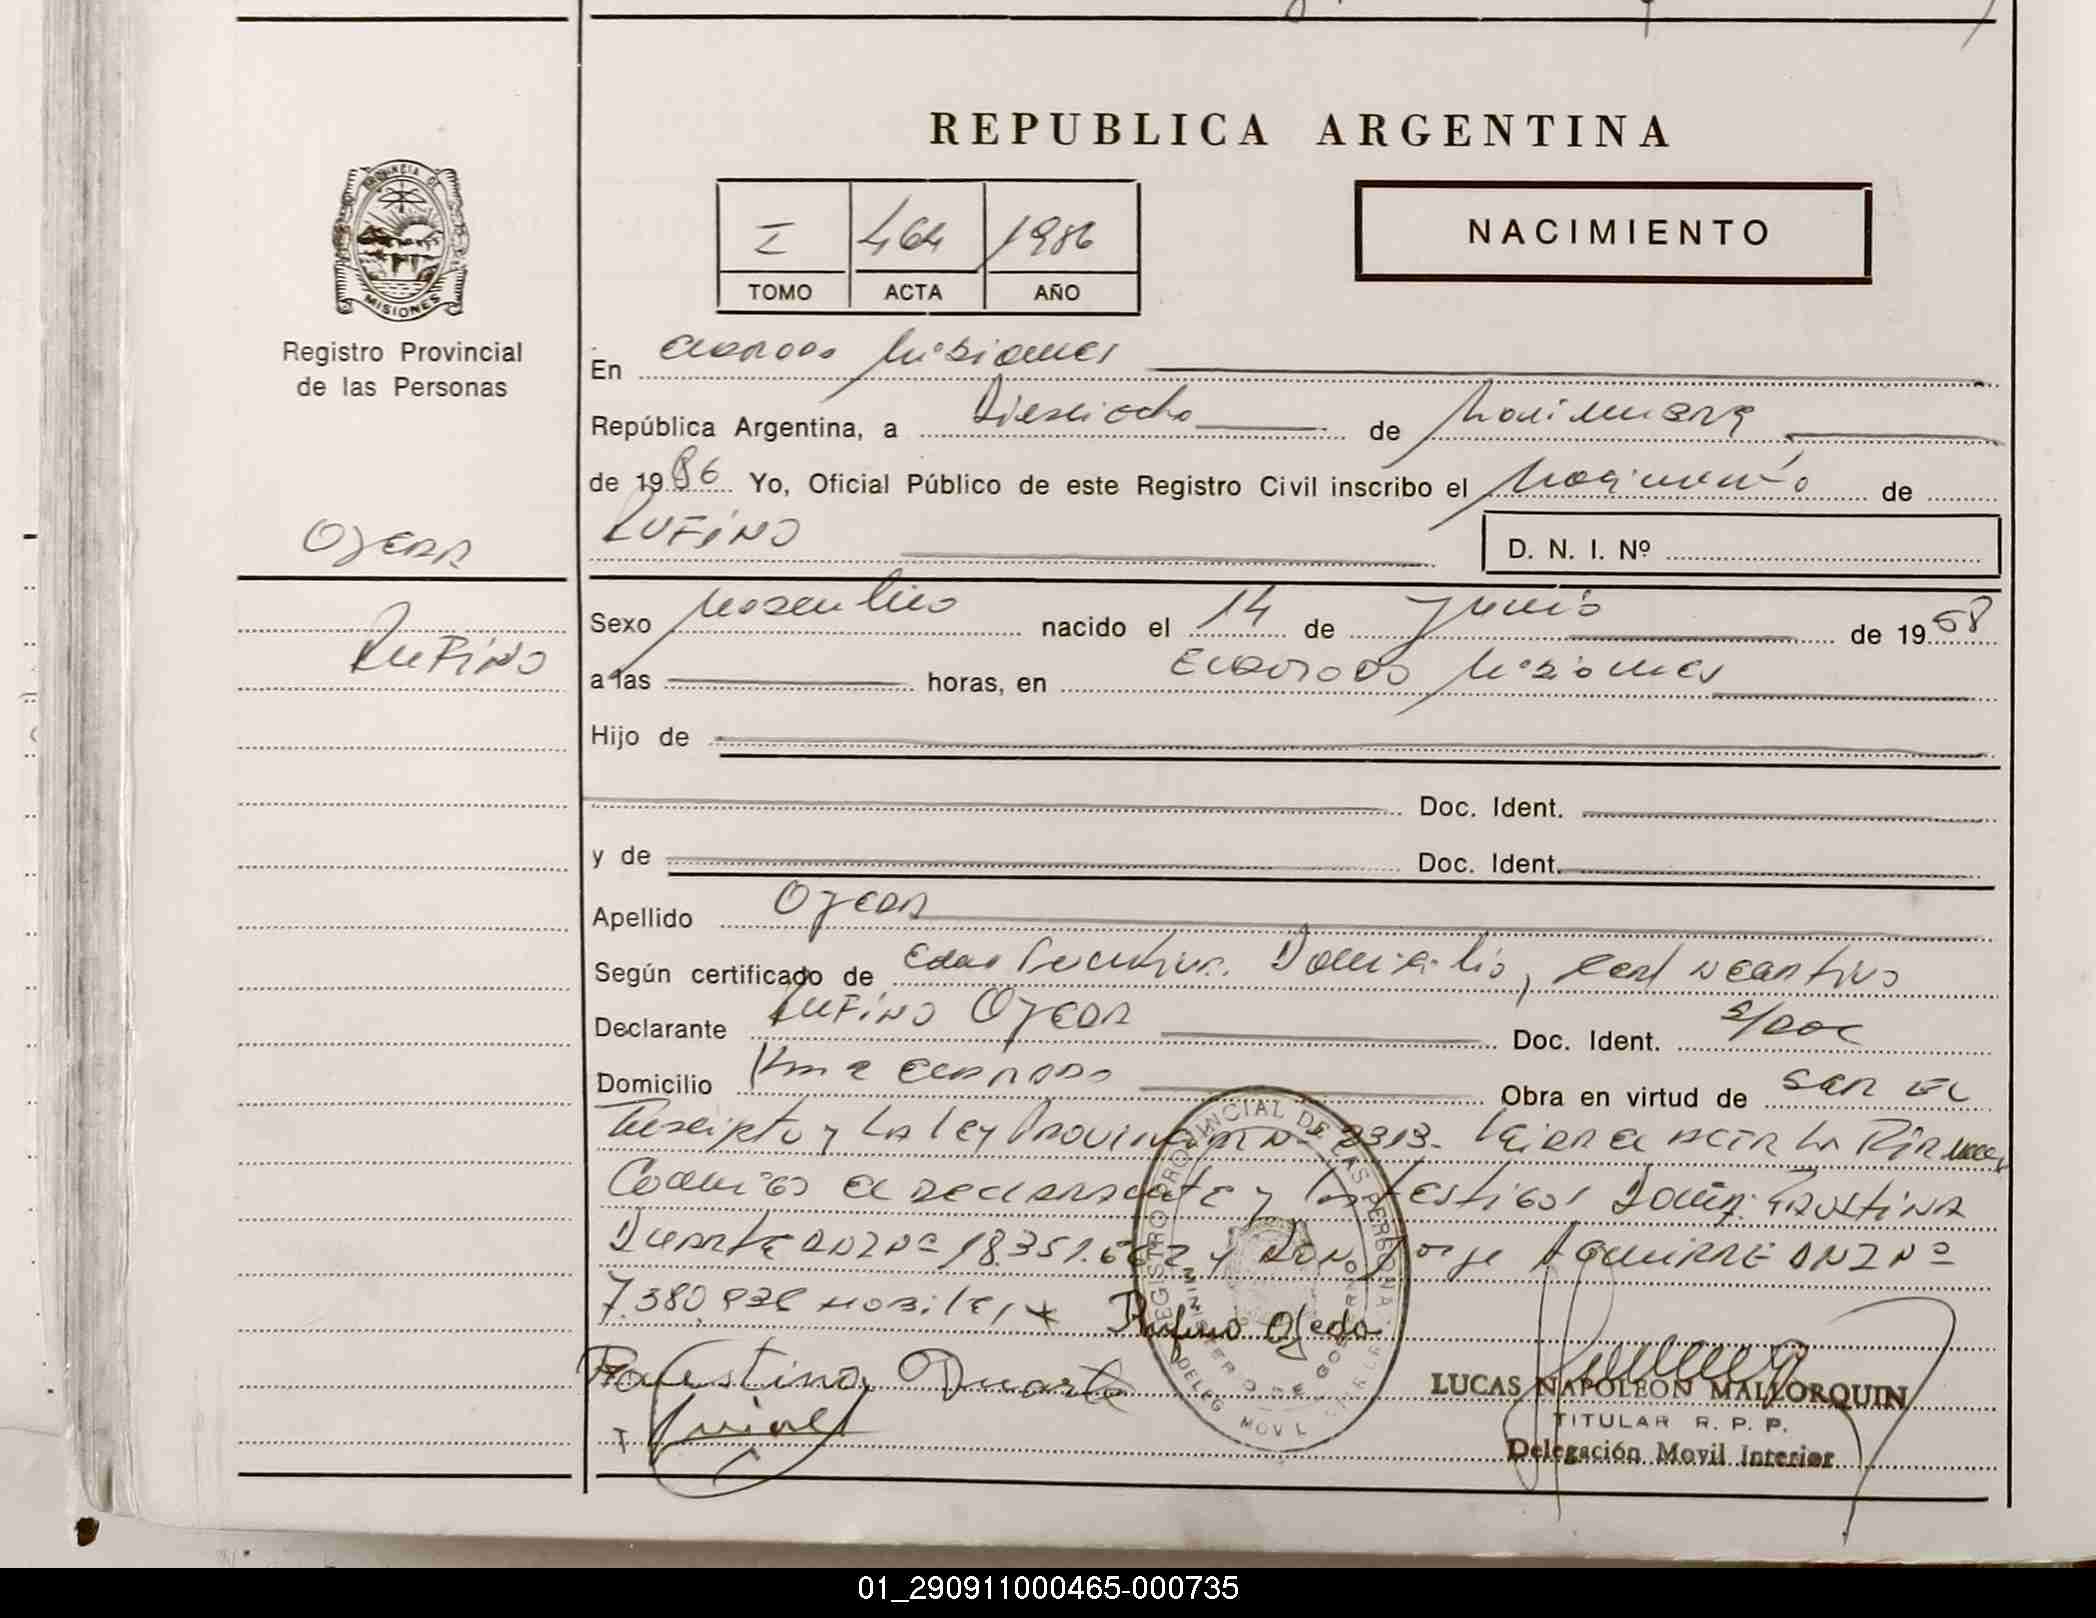 REPUBLICA ARGENTINA
PROVINCIA DE
MISIONES
Registro Provincial
de las Personas
I 464 1986
TOMO ACTA AÑO
NACIMIENTO
En Eldorado Misiones
República Argentina, a Dieciocho de Noviembre
de 1986 Yo, Oficial Público de este Registro Civil inscribo el Nacimiento de
RUFINO
D. N. I. Nº
OJEDA
RUFINO
Sexo Masculino nacido el 14 de Junio de 1968
a las horas, en Eldorado Misiones
Hijo de
Doc. Ident.
y de Doc. Ident.
Apellido OJEDA
Según certificado de Edad Presuntiva. Domicilio, Cert Negativo
Declarante RUFINO OJEDA Doc. Ident. S/DOC
Domicilio Km 2 Eldorado Obra en virtud de SER EL
Inscripto y La Ley Provincial Nº 2313. Leida el ACTA La Firman
Conmigo el Declarante y los testigos Doña FAUSTINA
Duarte DNI Nº 18.351.662 y Don Jorge AGUIRRE DNI Nº
7.380. Habiles
Rufino Ojeda
Faustina Duarte
REGISTRO PROVINCIAL DE LAS PERSONAS
MINISTERIO DE GOBIERNO
DELEG MOVIL
LUCAS NAPOLEON MALLORQUIN
TITULAR R. P. P.
Delegación Movil Interior
01_290911000465-000735